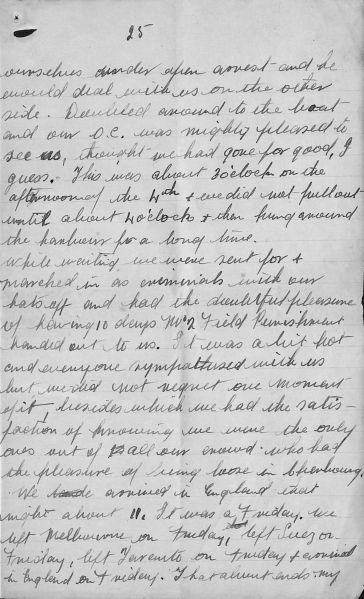 25
ourselves under open arrest and he
would deal with us on the other
side. Doubled around to the boat
and our O.C. was mighty pleased to
see us, thought we had gone for good, I
guess. This was about 3 o'clock on the
afternoon of the 4th + we did not pull out
until about 4 o'clock + then hung around
the harbour for a long time.
While waiting we were sent for +
marched in as criminals with our
hats off and had the doubtful pleasure
of having 10 days No 2 Field Punishment
handed out to us. It was a bit hot
and everyone sympathised with us
but we did not regret one moment
of it, besides which we had the satis-
faction of knowing we were the only
ones out of all our crowd who had
the pleasure of being loose in Cherbourg.
We arrived in England that
night about 11. It was a Friday. We
left Melbourne on Friday, left Suez on
Friday, left Taranto on Friday + arrived
in England on Friday. That about ends my